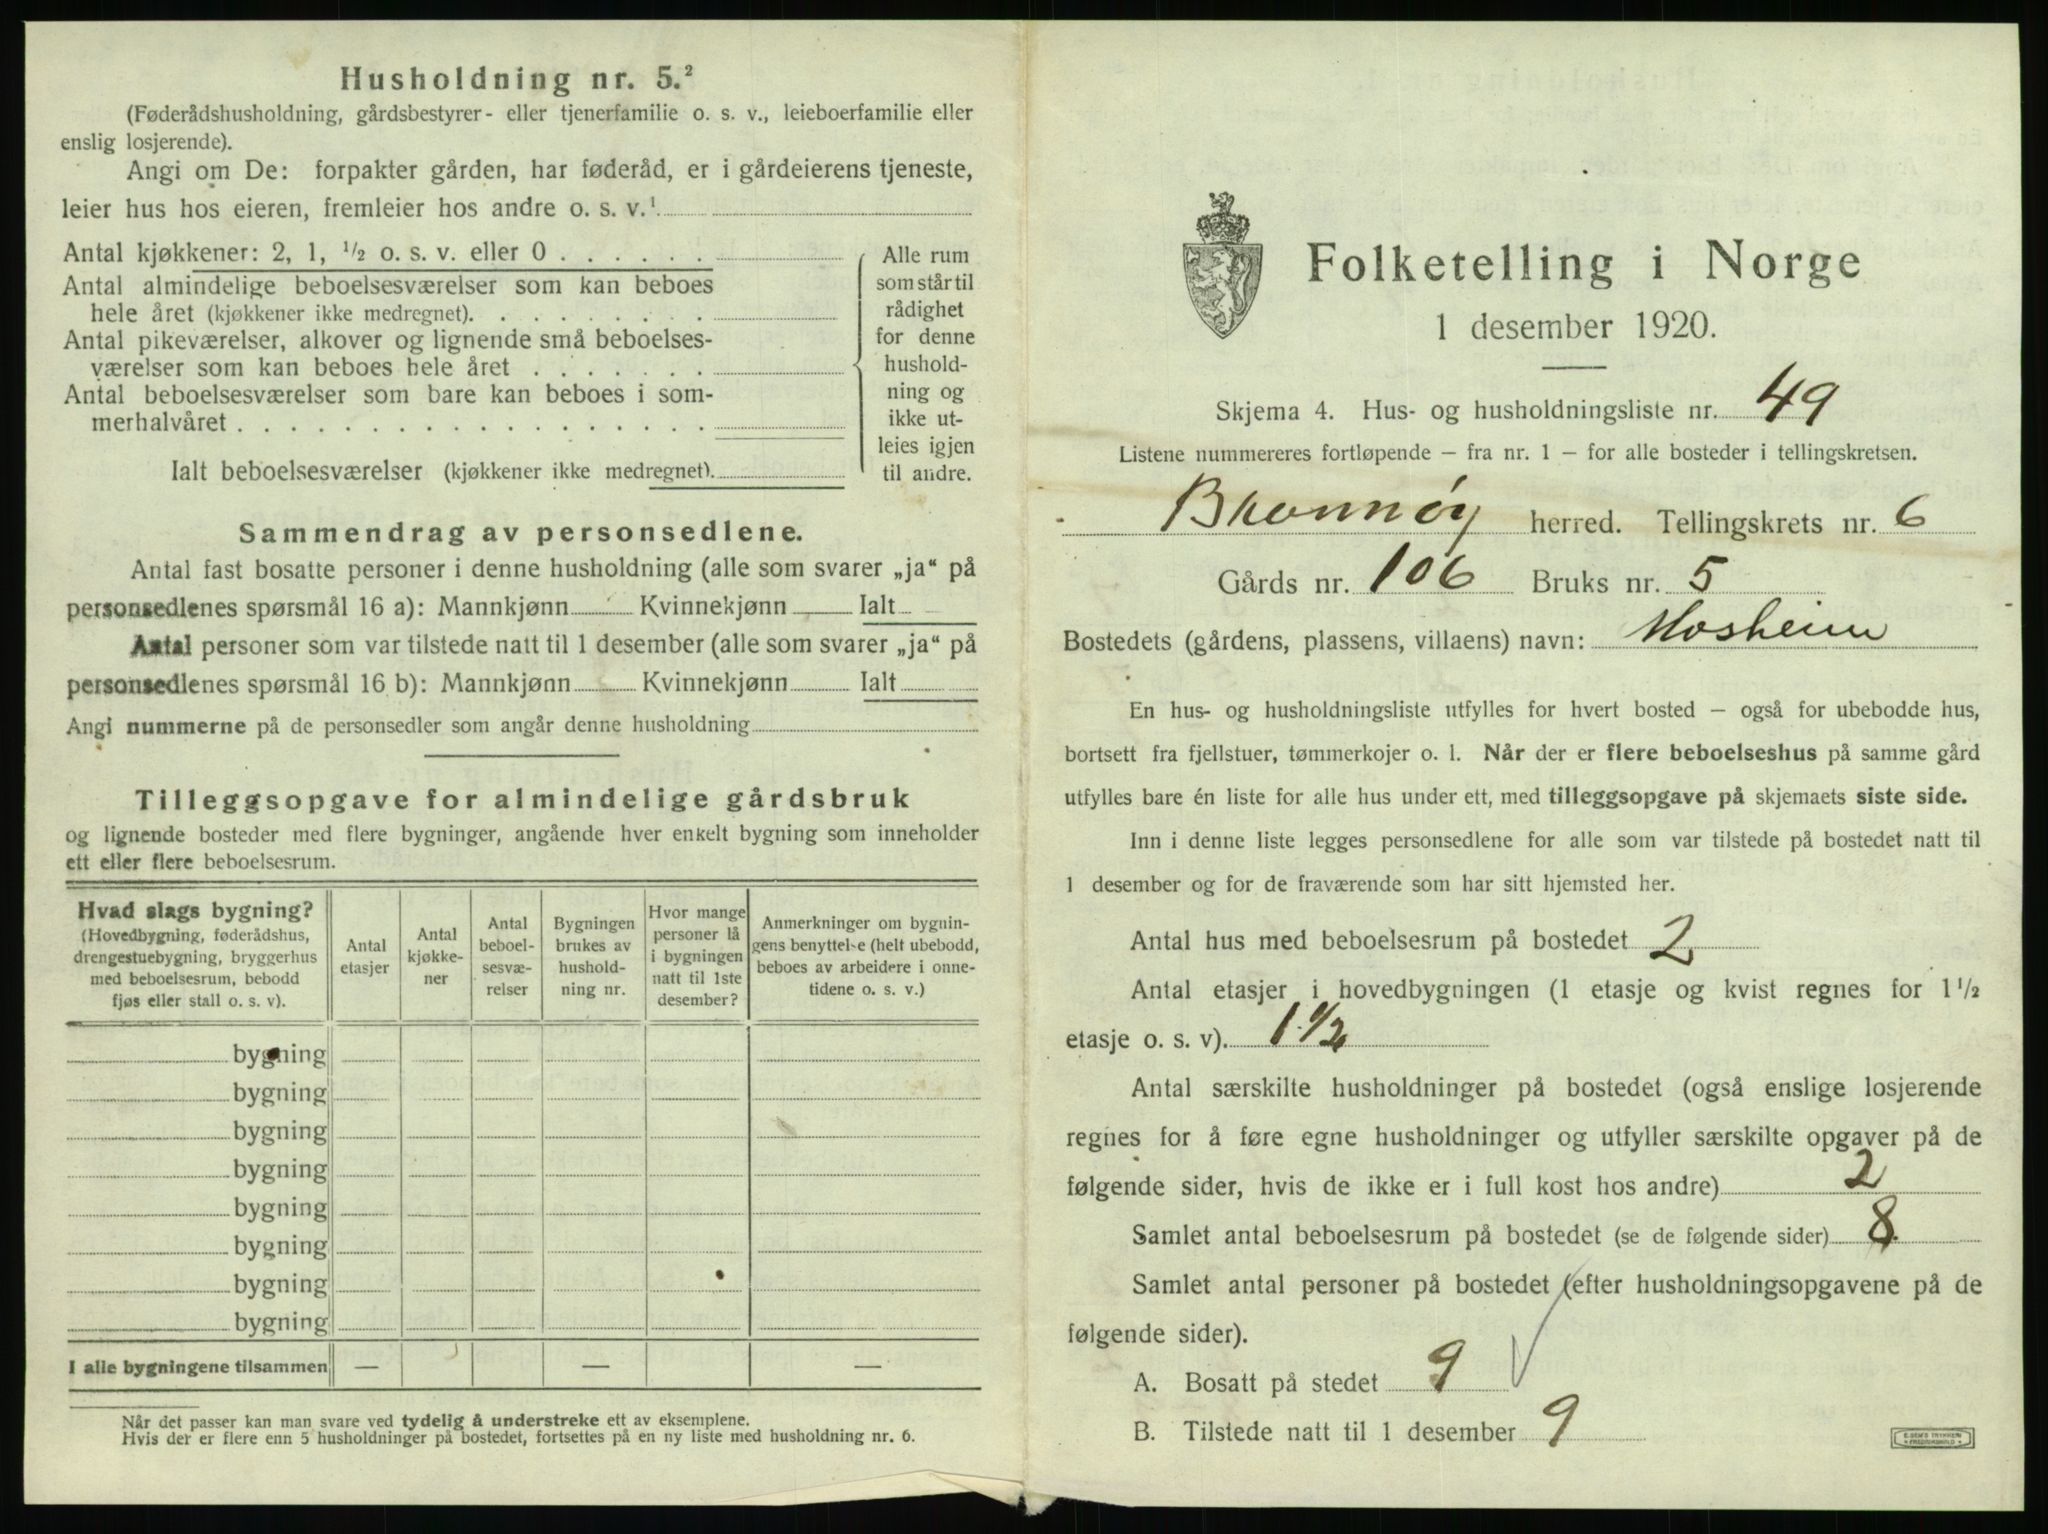 Husholdning nr. 5.²
(Føderådshusholdning, gårdsbestyrer- eller tjenerfamilie o. s. v., leieboerfamilie eller
enslig losjerende).
Angi om De: forpakter gården, har føderåd, er i gårdeierens tjeneste,
leier hus hos eieren, fremleier hos andre o. s. v.¹
Antal kjøkkener: 2, 1, ½ o. s. v. eller 0 . . . . . .
Antal almindelige beboelsesværelser som kan beboes
hele året (kjøkkener ikke medregnet). . . . . . . . .
Antal pikeværelser, alkover og lignende små beboelses-
værelser som kan beboes hele året . . . . . . .
Antal beboelsesværelser som bare kan beboes i som-
merhalvåret . . . . . . . . . . . . . . . . . .
Ialt beboelsesværelser (kjøkkener ikke medregnet).
Alle rum
som står til
rådighet
for denne
hushold-
ning og
ikke ut-
leies igjen
til andre.
Sammendrag av personsedlene.
Antal fast bosatte personer i denne husholdning (alle som svarer „ja“ på
personsedlenes spørsmål 16 a): Mannkjønn Kvinnekjønn Ialt
Antal personer som var tilstede natt til 1 desember (alle som svarer „ja“ på
personsedlenes spørsmål 16 b): Mannkjønn Kvinnekjønn Ialt
Angi nummerne på de personsedler som angår denne husholdning
Tilleggsopgave for almindelige gårdsbruk
og lignende bosteder med flere bygninger, angående hver enkelt bygning som inneholder
ett eller flere beboelsesrum.
Hvad slags bygning?
(Hovedbygning, føderådshus,
drengestuebygning, bryggerhus
med beboelsesrum, bebodd
fjøs eller stall o. s. v).
Antal
etasjer
Antal
kjøkke-
ner
Antal
beboel-
sesvæ-
relser
Bygningen
brukes av
hushold-
ning nr.
Hvor mange
personer lå
i bygningen
natt til 1ste
desember?
Anmerkninger om bygnin-
gens benyttelse (helt ubebodd,
beboes av arbeidere i onne-
tidene o. s. v.)
bygning
bygning
bygning
bygning
bygning
bygning
bygning
bygning
I alle bygningene tilsammen — — —
Når det passer kan man svare ved tydelig å understreke ett av eksemplene.
Hvis der er flere enn 5 husholdninger på bostedet, fortsettes på en ny liste med husholdning nr. 6.
Folketelling i Norge
1 desember 1920.
Skjema 4. Hus- og husholdningsliste nr. 49
Listene nummereres fortløpende — fra nr. 1 — for alle bosteder i tellingskretsen.
Brønnøy herred. Tellingskrets nr. 6
Gårds nr. 106 Bruks nr. 5
Bostedets (gårdens, plassens, villaens) navn: Mosheim
En hus- og husholdningsliste utfylles for hvert bosted — også for ubebodde hus,
bortsett fra fjellstuer, tømmerkojer o. l. Når der er flere beboelseshus på samme gård
utfylles bare én liste for alle hus under ett, med tilleggsopgave på skjemaets siste side.
Inn i denne liste legges personsedlene for alle som var tilstede på bostedet natt til
1 desember og for de fraværende som har sitt hjemsted her.
Antal hus med beboelsesrum på bostedet 2
Antal etasjer i hovedbygningen (1 etasje og kvist regnes for 1 ½
etasje o. s. v). 1 ½
Antal særskilte husholdninger på bostedet (også enslige losjerende
regnes for å føre egne husholdninger og utfyller særskilte opgaver på de
følgende sider, hvis de ikke er i full kost hos andre) 2
Samlet antal beboelsesrum på bostedet (se de følgende sider) 8.
Samlet antal personer på bostedet (efter husholdningsopgavene på de
følgende sider).
A. Bosatt på stedet 9
B. Tilstede natt til 1 desember 9